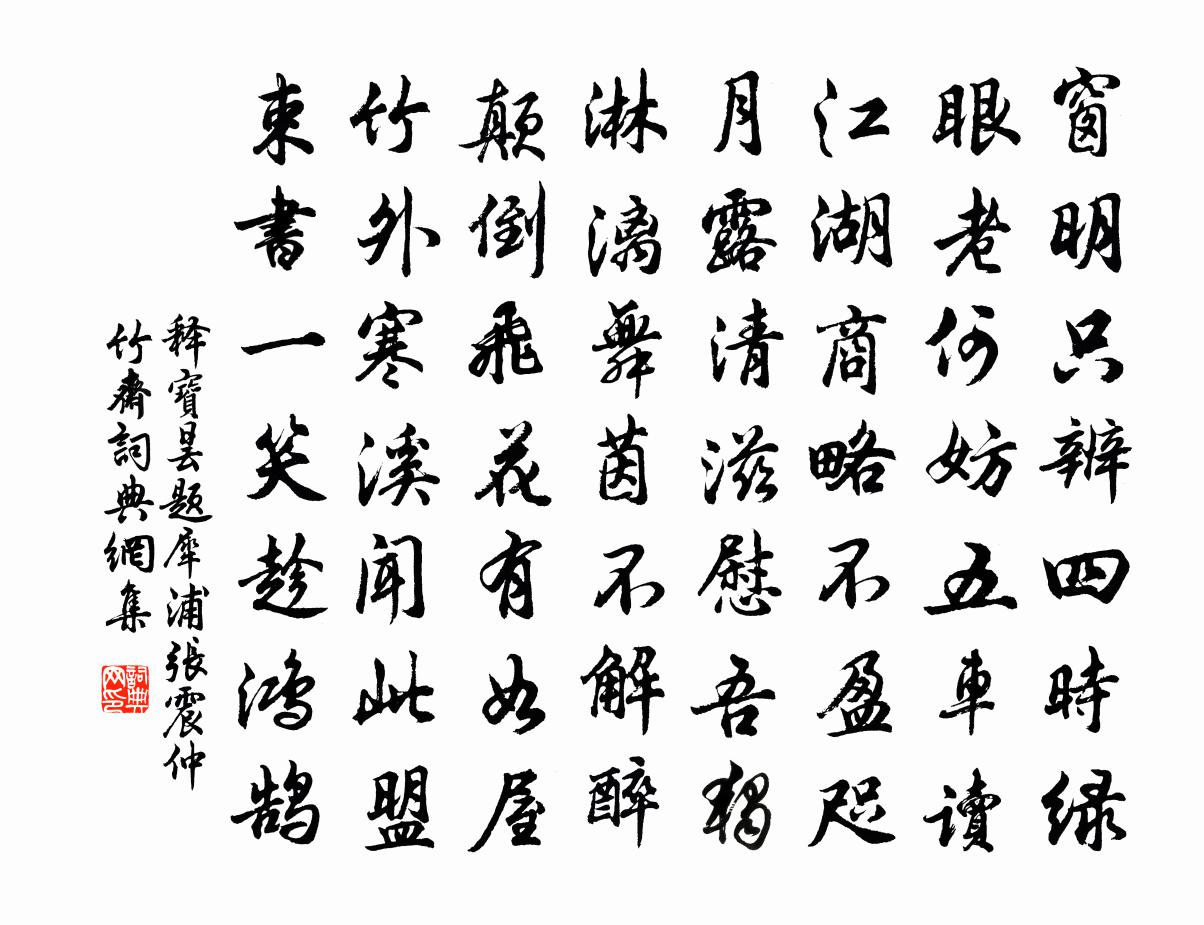 窗明只辨四時绿
眼老何妨五車读
江湖商略不盈咫
月露清滋慰吾獨
淋漓舞茵不解醉
颠倒飛花有如屋
竹外寒溪闻此盟
束書一笑趁鸿鹄
释寶昙题犀浦張震仲
竹齋詞典網集
詞典网印